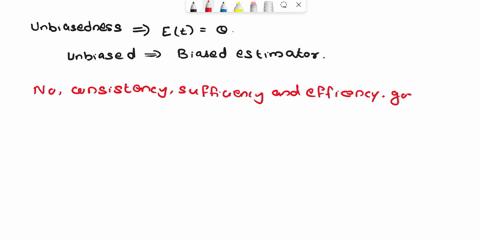 Unbiasedness ⟹ E(t) = θ.
Unbiased ⟹ Biased estimator.
No, consistency, sufficiency and efficiency. go